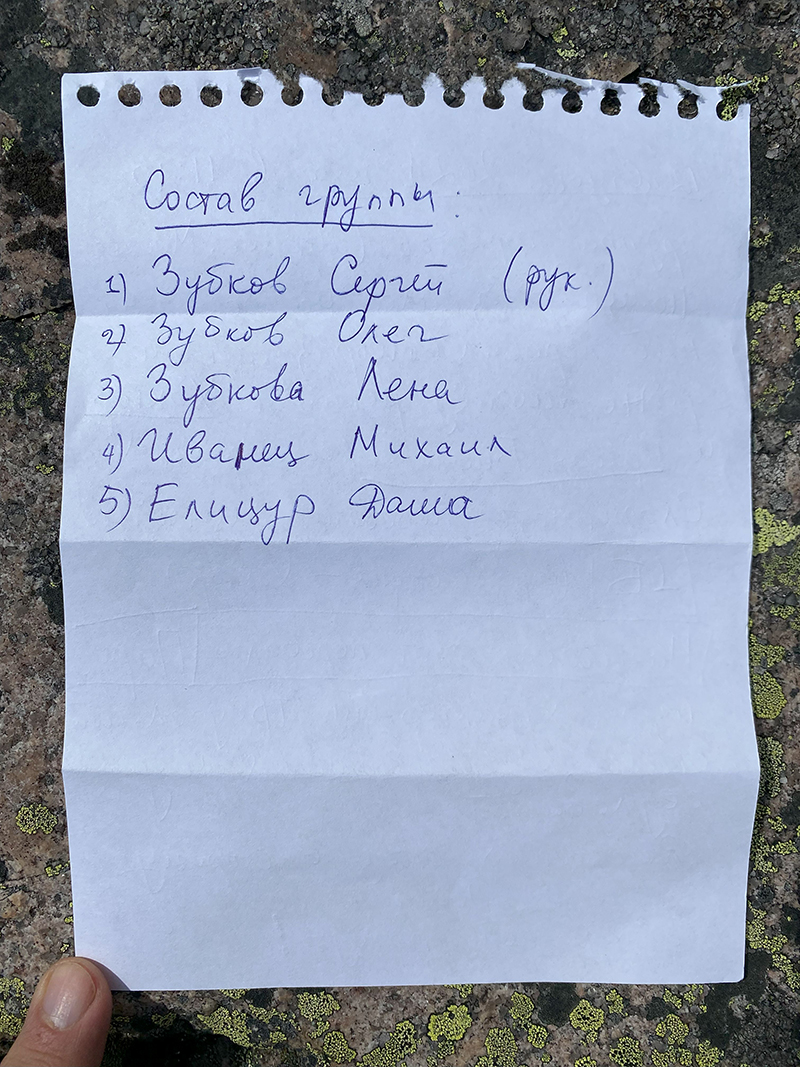 Состав группы:
1) Зубков Сергей (рук.)
2) Зубков Олег
3) Зубкова Лена
4) Иванец Михаил
5) Елицур Даша